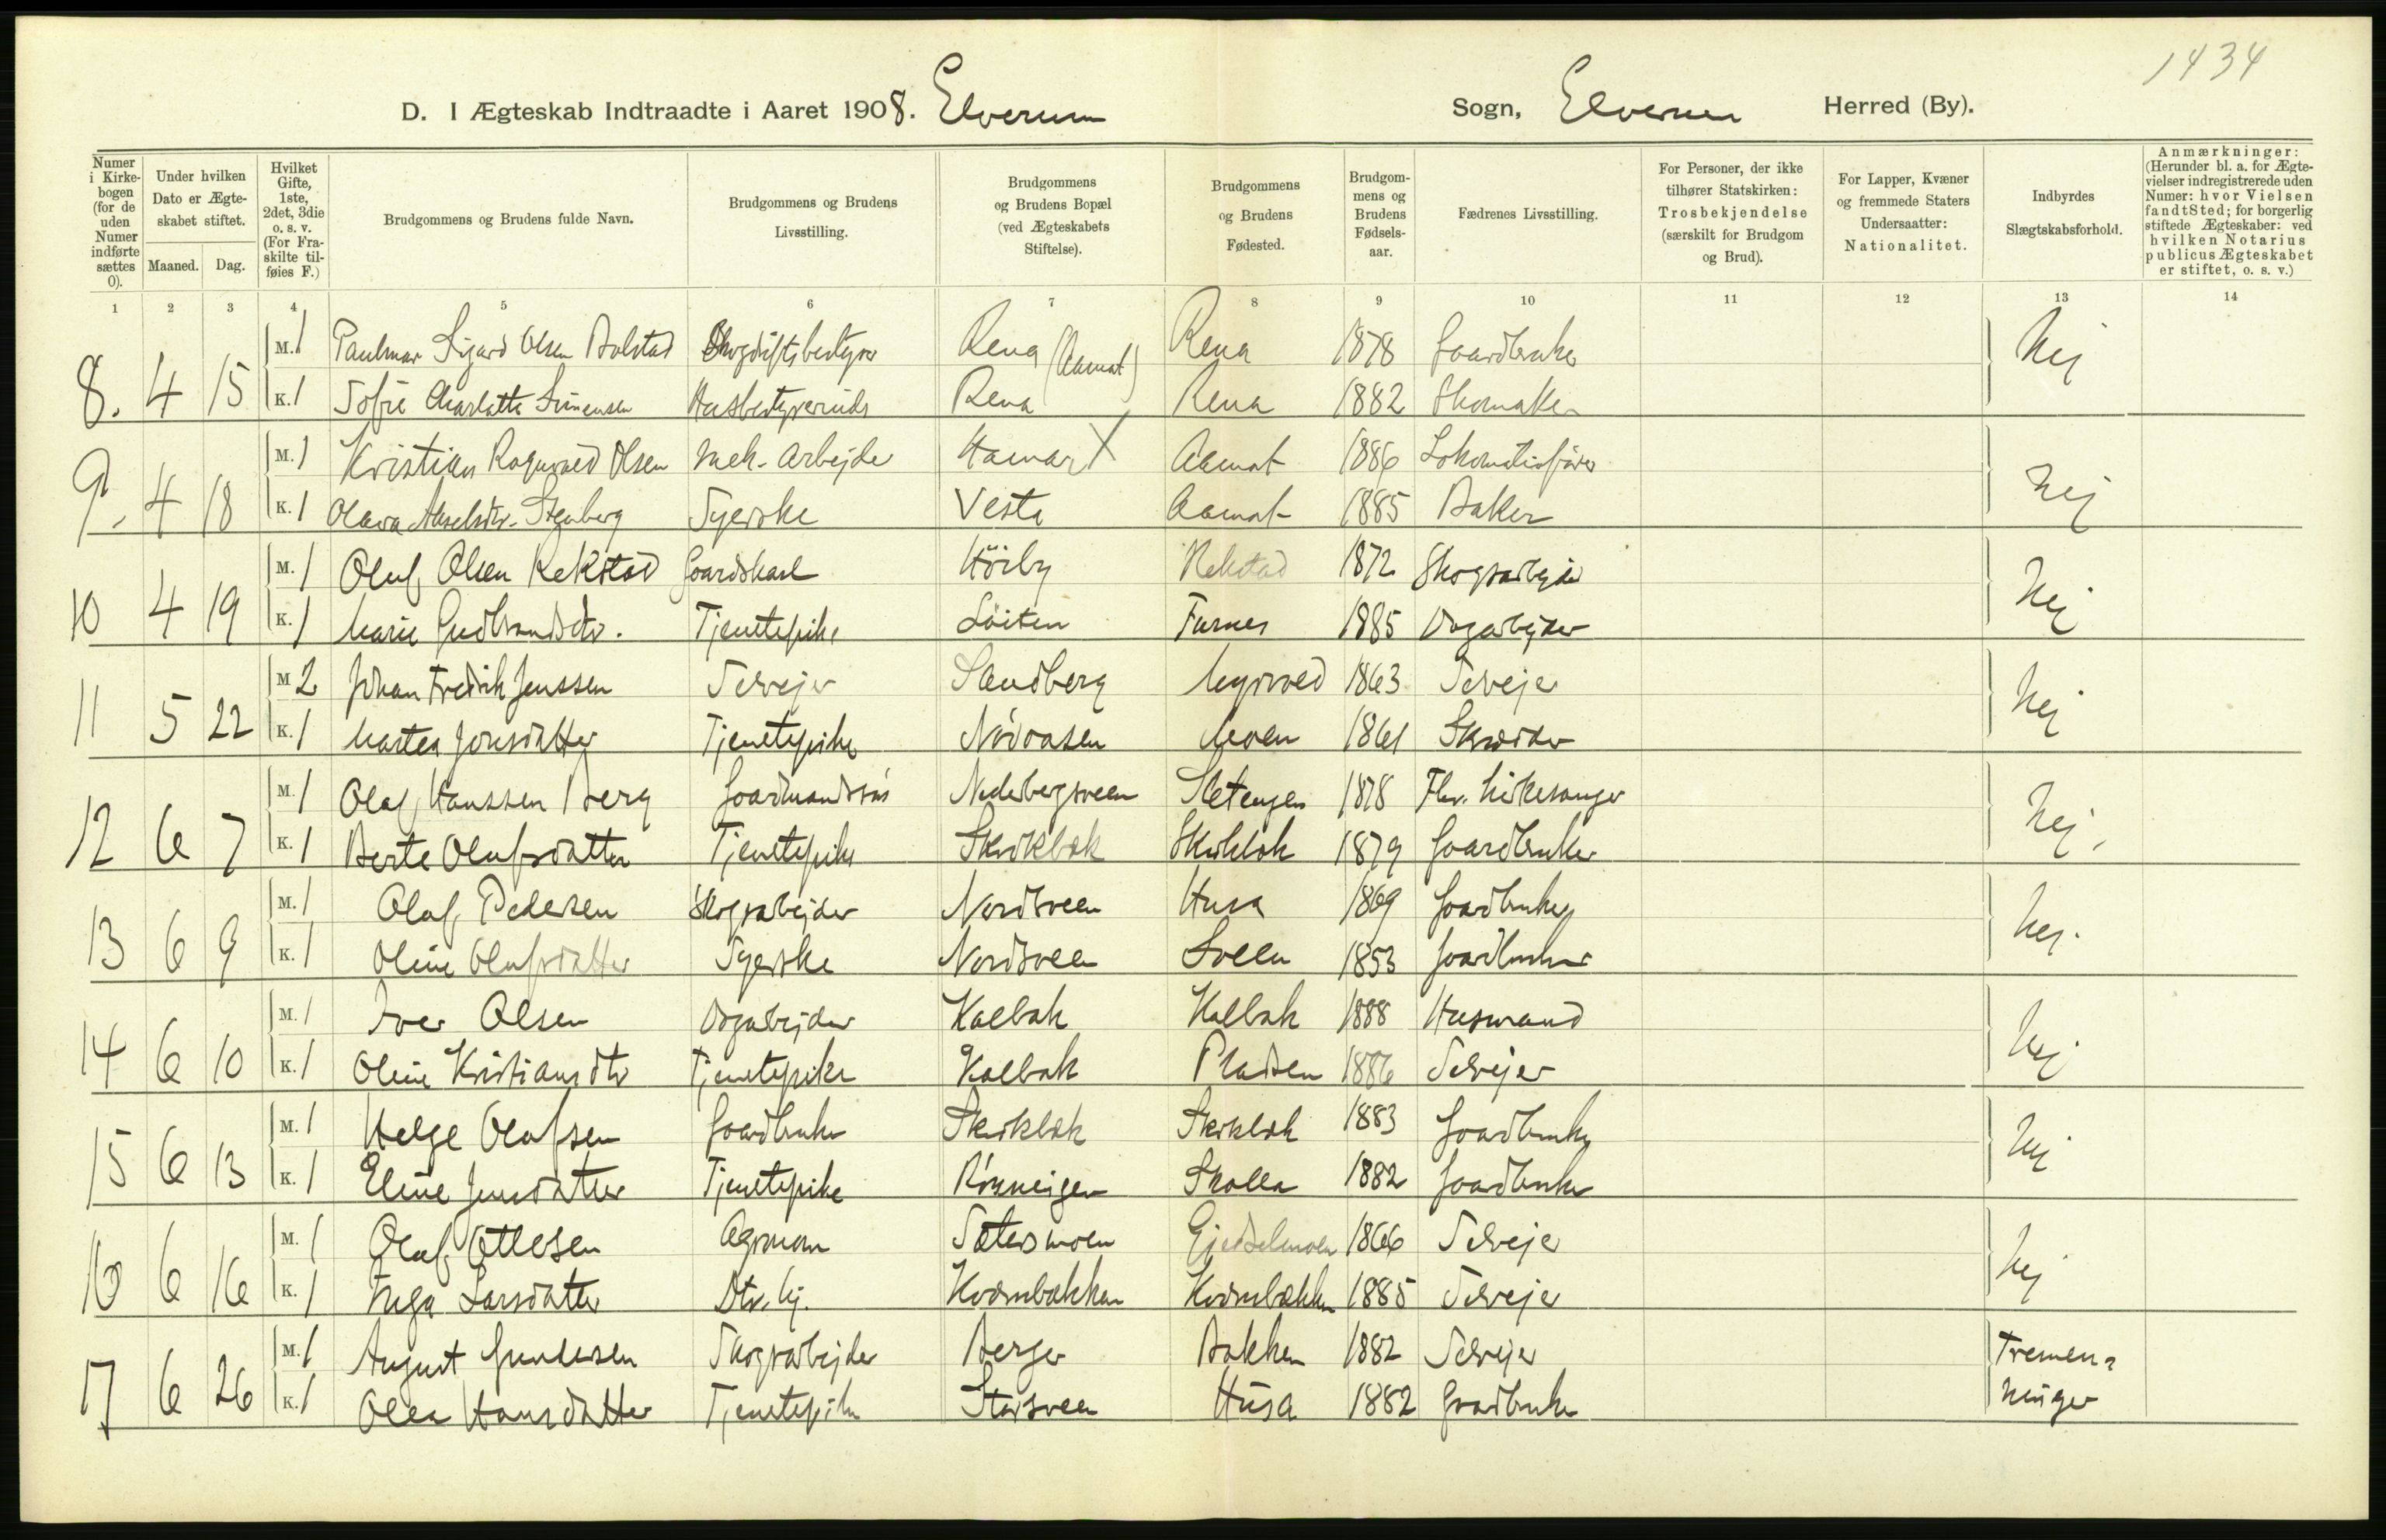 1434
D. I Ægteskab Indtraadte i Aaret 1908. Elverum Sogn, Elverum Herred (By).
Numer i Kirkebogen (for de uden Numer indførte sættes 0).
Under hvilken Dato er Ægteskabet stiftet.
Maaned. Dag.
Hvilket Gifte, 1ste, 2det, 3die o. s. v. (For Fraskilte tilføies F.)
Brudgommens og Brudens fulde Navn.
Brudgommens og Brudens Livsstilling.
Brudgommens og Brudens Bopæl (ved Ægteskabets Stiftelse).
Brudgommens og Brudens Fødested.
Brudgommens og Brudens Fødselsaar.
Fædrenes Livsstilling.
For Personer, der ikke tilhører Statskirken: Trosbekjendelse (særskilt for Brudgom og Brud).
For Lapper, Kvæner og fremmede Staters Undersaatter: Nationalitet.
Indbyrdes Slægtskabsforhold.
Anmærkninger: (Herunder bl. a. for Ægtevielser indregistrerede uden Numer: hvor Vielsen fandt Sted; for borgerlig stiftede Ægteskaber: ved hvilken Notarius publicus Ægteskabet er stiftet, o. s. v.)
1 2 3 4 5 6 7 8 9 10 11 12 13 14
8. 4 15 M. 1 Sigurd Olsen Bolstad Skogdriftsbestyrer Rena (Aamot) Rena 1878 Gaardbruker Nej
K. 1 Sofie Charlotte Simensen Husbestyrerinde Rena Rena 1882 Skomaker
9. 4 18 M. 1 Kristian Ragnvald Olsen Mek. Arbejder Hamar X Aamot 1886 Lokomotivfører Nej
K. 1 Olava Akselsdtr. Stenberg Syerske Vesta Aamot 1885 Baker
10 4 19 M. 1 Oluf Olsen Rekstad Gaardskarl Hörby Rekstad 1872 Skogsarbejder Nej
K. 1 Marie Gudbrandsdtr. Tjenestepike Löiten Furnes 1885 Dagarbejder
11 5 22 M 2 Johan Fredrik Jenssen Selvejer Sandberg Myrvold 1863 Selvejer Nej
K. 1 Martea Jonsdatter Tjenestepike Nordaasen Moen 1861 Skrædder
12 6 7 M. 1 Olaf Hanssen Berg Gaardmandssön Nederbergsveen Sletengen 1878 Fhv. Kirkesanger Nej.
K. 1 Berte Olufsdatter Tjenestepike Skokbæk Skokbæk 1879 Gaardbruker
13 6 9 M. 1 Olaf Pedersen Skogsarbejder Nordsveen Husa 1869 Gaardbruker Nej.
K. 1 Oline Olufsdatter Syerske Nordsveen Sveen 1853 Gaardbruker
14 6 10 M. 1 Iver Olsen Dagarbejder Kalbæk Kalbæk 1888 Husmand Nej
K. 1 Oline Kristiansdtr Tjenestepike Kalbæk Pladsen 1886 Selvejer
15 6 13 M. 1 Helge Olafsen Gaardbruker Skokbæk Skokbæk 1883 Gaardbruker Nej
K. 1 Eline Jensdatter Tjenestepike Skolla 1882 Gaardbruker
16 6 16 M. 1 Olaf Ottesen Agronom Sætersmoen Gjedtelmoen 1866 Selvejer Nej
K. 1 Inga Larsdatter Dtr. hj. Kværnbækken Kværnbækken 1885 Selvejer
17 6 26 M. 1 August Gundersen Skogsarbejder Berger Bakken 1882 Selvejer Tremen-
K. 1 Olea Hansdatter Tjenestepike Storsveen Husa 1882 Gaardbruker ninger